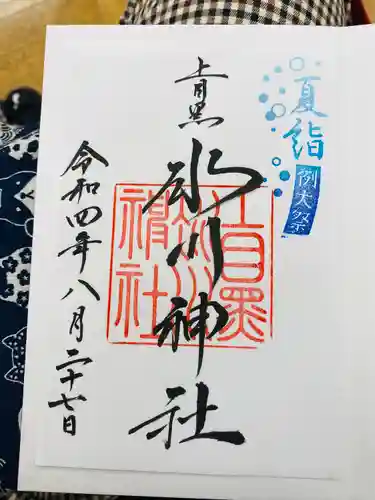 夏詣
例大祭
上目黒
氷川神社
上目黒氷川神社
令和四年八月二十七日